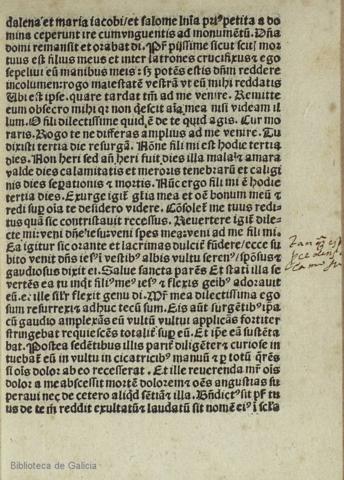 dalena⁊ et maria iacobi⁊ et salome lnīa pri⁹ petita a do
mina ceperunt ire cum vnguentis ad monumētū. Dn̄a
domi remansit et orabat di. Pr̄ pijssime sicut scis⁊ mor
tuus est filius meus et inter latrones crucifixus⁊ et ego
sepeliui eū manibus meis: sꝫ potēs estis dn̄m reddere
incolumem: rogo maiestatē vestrā vt eū mihi reddatis
Ubi est ipse. quare tardat tm̄ ad me venire. Remitte
eum obsecro mihi q⁊ non qescit aīa mea nisi videam il
lum. O fili dilectissime quid ē de te quid agis. Cur mo
raris. Rogo te ne differas amplius ad me venire. Tu
dixisti tertia die resurgā. Nōne fili mi est hodie tertia
dies. Non heri sed an̄ heri fuit dies illa mala⁊ amara
valde dies calamitatis et meroris tenebrarū et caligi
nis dies sepationis ⁊ mortis. Nūc ergo fili mi ē hodie
tertia dies. Exurge igit̄ glia mea et oē bonum meū ⁊
redi sup oīa te desidero videre. Cōsolet̄ me tuus redi⁊
tus quā sic contristauit recessus. Reuertere igit̄ dile⁊
cte mi: veni dn̄e iesu: veni spes mea: veni ad me fili mi.
Ea igitur sic orante et lacrimas dulcit̄ fūdere/ecce su
bito venit dn̄s ies⁹ ī vestib⁹ albis vultu seren⁹/spōsus⁊
gaudiosus dixit ei. Salue sancta parēs Et statī illa se
vertēs ea tu indr̄ fili⁹ me⁹ ies⁹ ⁊ flexis geib⁹ adorauit
eū. et ille silr̄ flexit genu di. Mr̄ mea dilectissima ego
sum resurrexi⁊ adhuc tecū sum. Eis aūt surgētib⁹ ipa
cū gaudio amplexās eū vultū vultui applicās fortiter
stringebat requiescēs totalit̄ sup eū. Et ipe eū sustēta
bat. Postea sedētibus illis parit̄ diligēter⁊ curiose in
tuebat̄ eū in vultu in cicatricib⁹ manuū ⁊ p totū qrēs
si oīs dolor ab eo recesserat. Et ille reuerenda mr̄ oīs
dolor a me abscessit mortē dolorem⁊ oēs angustias su
peraui nec de cetero aliqd sētiā de illa. Bn̄dict⁹ sit pr̄ tu
us de te m̄ reddit exultatū⁊ laudatū sit nomē ei⁹ ī scla
Biblioteca de Galicia